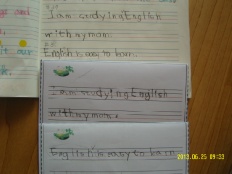 I am studying English
with my mom.
English is easy to learn.
I am studying English
with my mom.
English is easy to learn.
2013.06.25 09:33